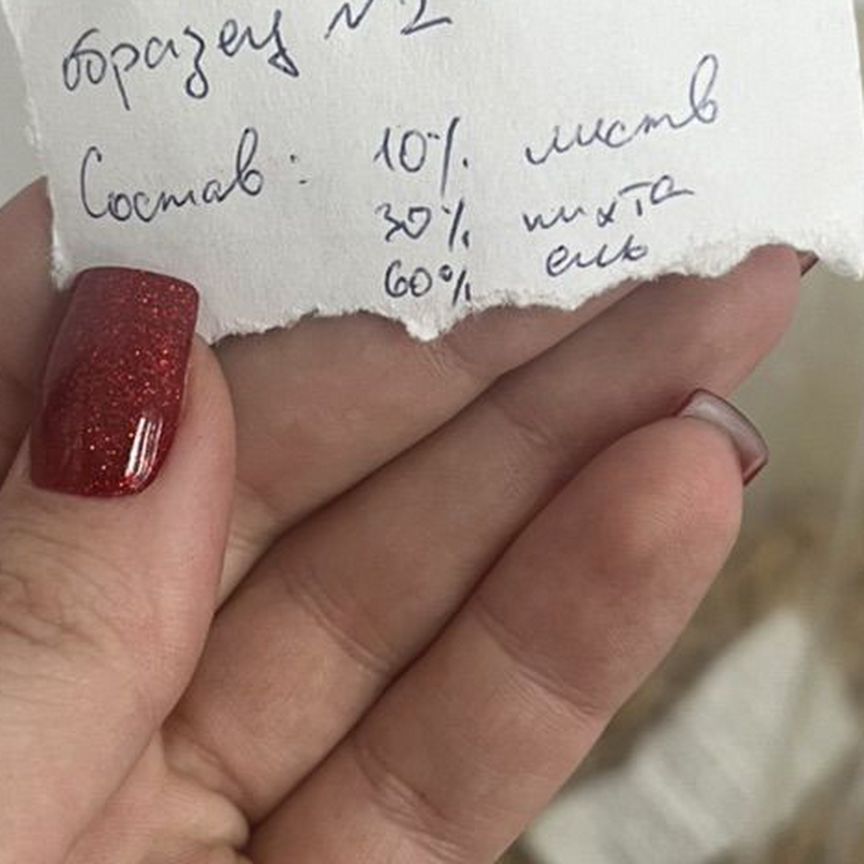 образец №2
Состав: 10% листв
30% пихта
60% ель